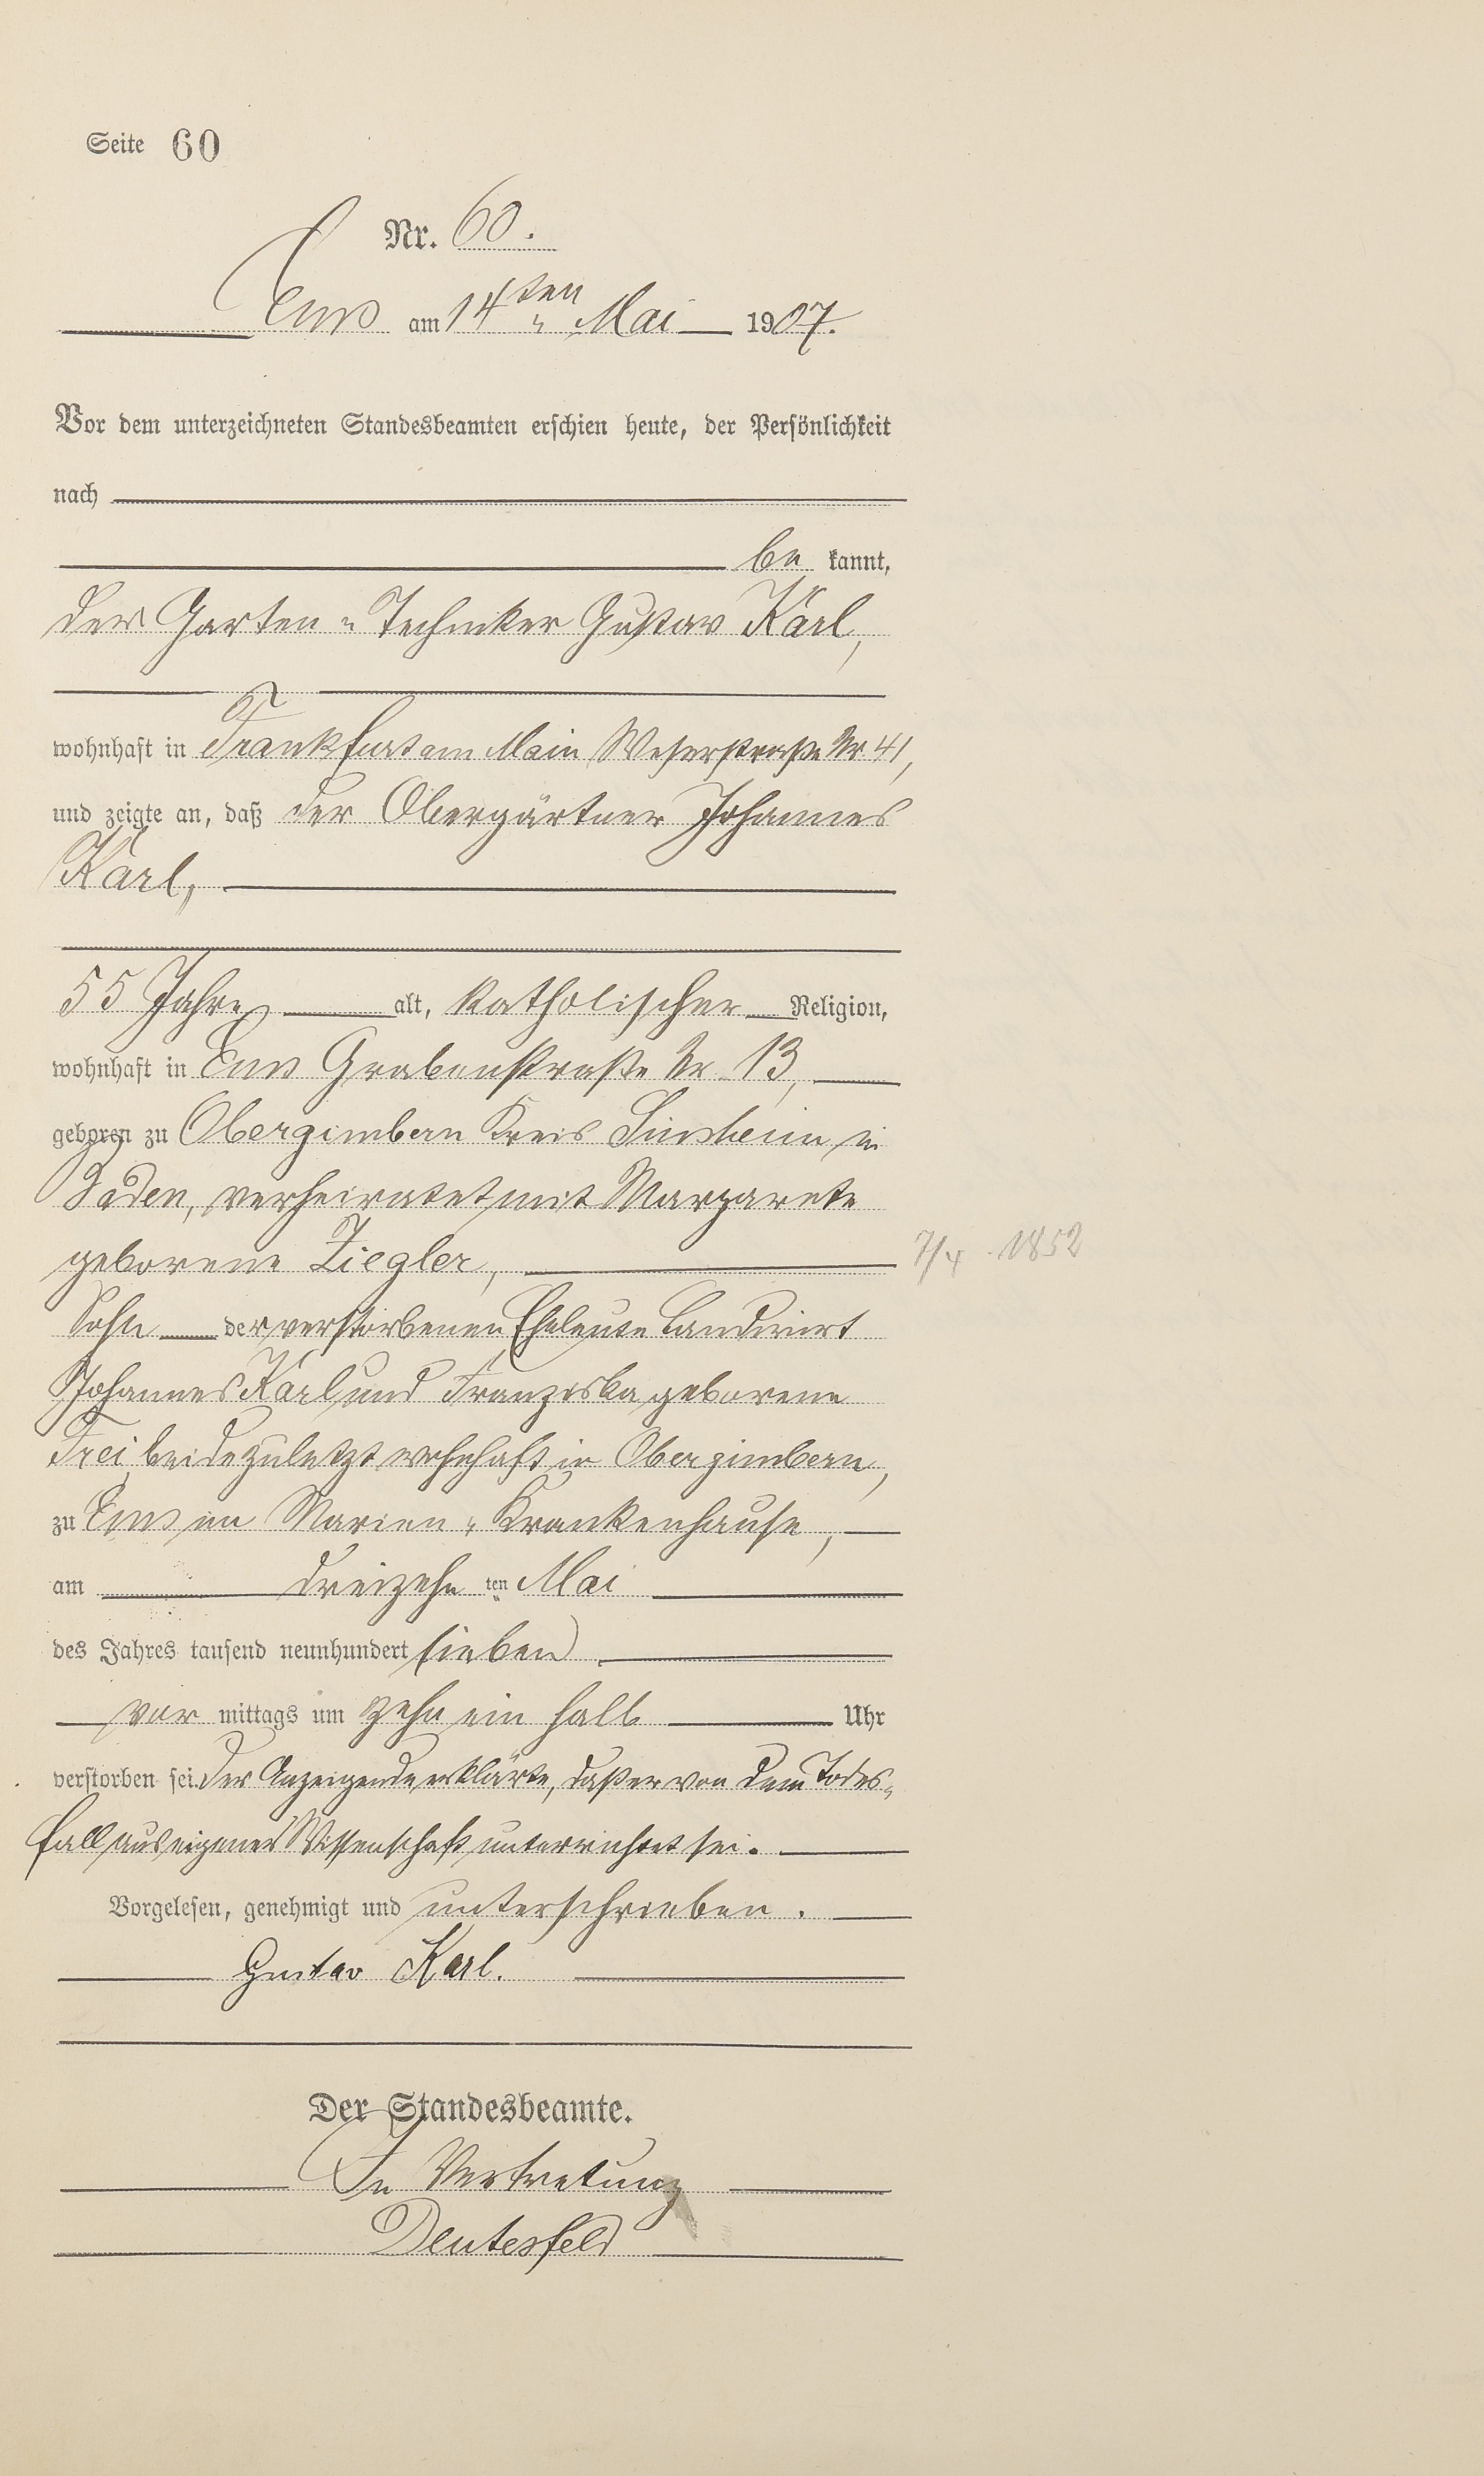 Seite 60
Nr. 60.
Ems am 14ten Mai 1907.
Vor dem unterzeichneten Standesbeamten erschien heute, der Persönlichkeit
nach
be kannt,
der Garten-Techniker Gustav Karl,
wohnhaft in Frankfurt am Main Weserstraße Nr. 41,
und zeigte an, daß der Obergärtner Johannes
Karl,
55 Jahre alt, katholischer Religion,
wohnhaft in Ems Grabenstraße Nr. 13,
geboren zu Obergimbern Kreis Sinsheim in
Baden, verheiratet mit Margarete
geborene Ziegler,
7/4. 1852
Sohn der verstorbenen Eheleute Landwirt
Johannes Karl und Franziska geborene
Frei, beide zuletzt wohnhaft in Obergimbern,
zu Ems im Marien-Krankenhause,
am dreizehn ten Mai
des Jahres tausend neunhundert sieben
vor mittags um zehn ein halb Uhr
verstorben sei. Der Anzeigende erklärte, daß er von dem Todes-
fall aus eigener Wissenschaft unterrichtet sei.
Vorgelesen, genehmigt und unterschrieben.
Gustav Karl.
Der Standesbeamte.
In Vertretung
Deutesfeld